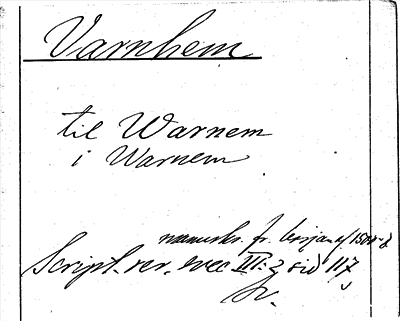 Varnhem
til Warnem
i Warnem
manuskr. fr. början af 1500-t.
Script. rer. svec III: 2 sid 117